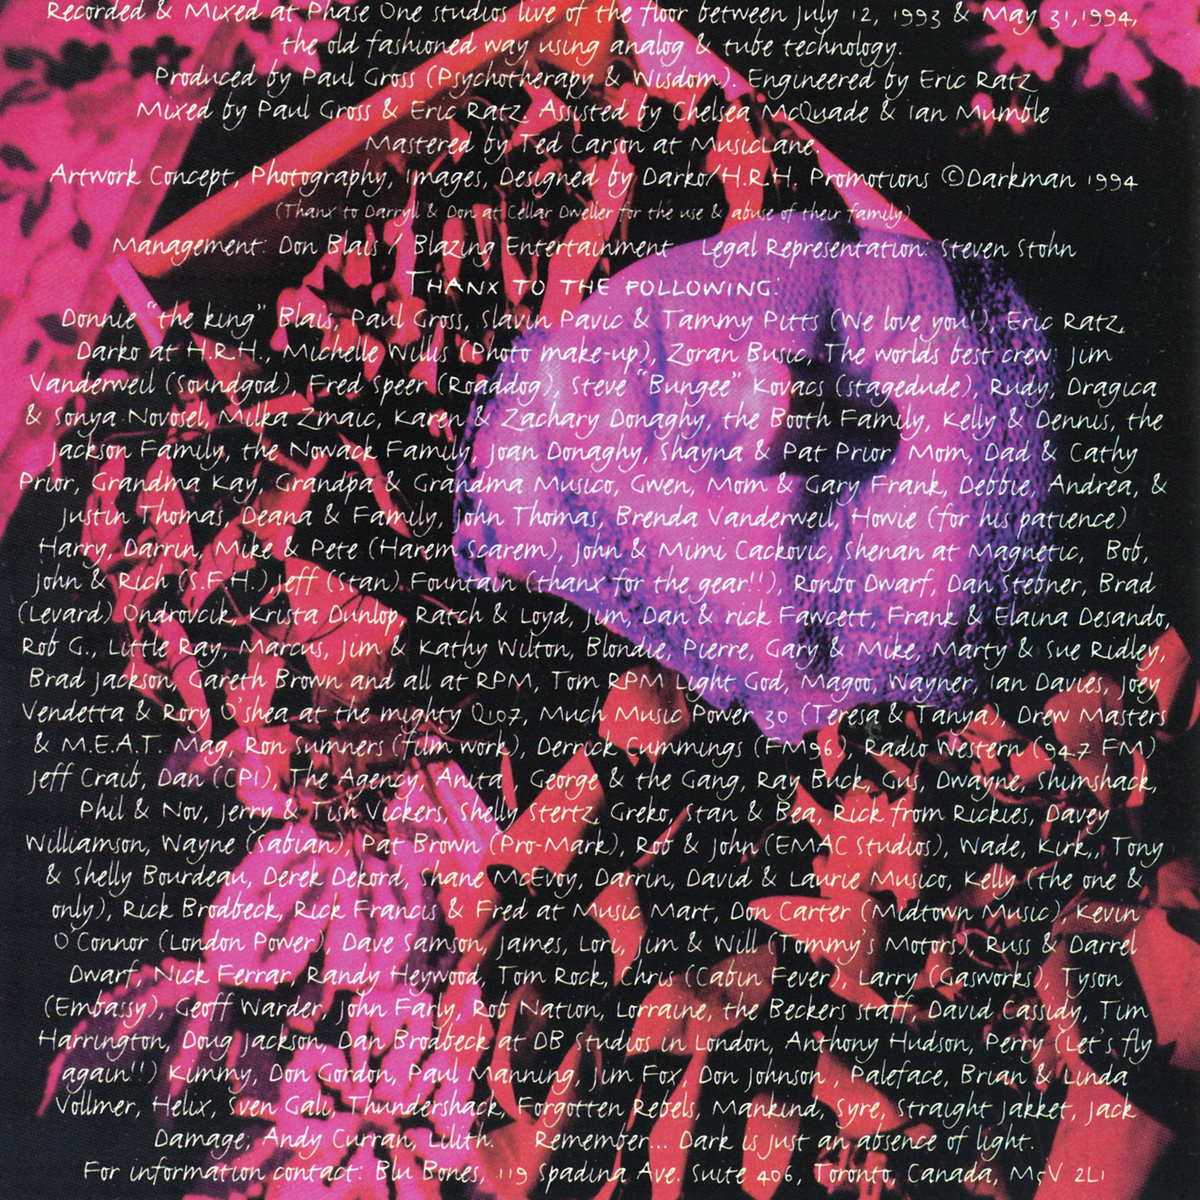 Recorded & Mixed at Phase One studios live of the floor between July 12, 1993 & May 31,1994,
the old fashioned way using analog & tube technology.
Produced by Paul Gross (Psychotherapy & Wisdom). Engineered by Eric Ratz
Mixed by Paul Gross & Eric Ratz. Assisted by Chelsea McQuade & Ian Mumble
Mastered by Ted Carson at MusicLane.
Artwork Concept, Photography, Images, Designed by Darko/H.R.H. Promotions ©Darkman 1994
(Thanx to Darryll & Don at Cellar Dweller for the use & abuse of their family)
Management: Don Blais / Blazing Entertainment Legal Representation: Steven Stohn
THANX TO THE FOLLOWING:
Donnie "the king" Blais, Paul Gross, Slavin Pavic & Tammy Pitts (We love you!), Eric Ratz,
Darko at H.R.H., Michelle Willis (Photo make-up), Zoran Busic, The worlds best crew: Jim
Vanderweil (Soundgod), Fred Speer (Roaddog), Steve "Bungee" Kovacs (stagedude), Rudy, Dragica
& Sonya Novosel, Milka Zmaic, Karen & Zachary Donaghy, the Booth Family, Kelly & Dennis, the
Jackson Family, the Nowack Family, Joan Donaghy, Shayna & Pat Prior, Mom, Dad & Cathy
Prior, Grandma Kay, Grandpa & Grandma Musico, Gwen, Mom & Gary Frank, Debbie, Andrea, &
Justin Thomas, Deana & Family, John Thomas, Brenda Vanderweil, Howie (for his patience)
Harry, Darrin, Mike & Pete (Harem Scarem), John & Mimi Cackovic, Shenan at Magnetic, Bob,
John & Rich (S.F.H.),Jeff (Stan) Fountain (thanx for the gear!!), Ronbo Dwarf, Dan Stebner, Brad
(Levard) Ondrovcik, Krista Dunlop, Ratch & Loyd, Jim, Dan & rick Fawcett, Frank & Elaina Desando,
Rob G., Little Ray, Marcus, Jim & Kathy Wilton, Blondie, Pierre, Gary & Mike, Marty & Sue Ridley,
Brad Jackson, Gareth Brown and all at RPM, Tom RPM Light God, Magoo, Wayner, Ian Davies, Joey
Vendetta & Rory O'shea at the mighty Q107, Much Music Power 30 (Teresa & Tanya), Drew Masters
& M.E.A.T. Mag, Ron Sumners (film work), Derrick Cummings (FM96), Radio Western (94.7 FM)
Jeff Craib, Dan (CPI), The Agency, Anita, George & the Gang, Ray Buck, Gus, Dwayne, Shimshack,
Phil & Nov, Jerry & Tish Vickers, Shelly Stertz, Greko, Stan & Bea, Rick from Rickies, Davey
Williamson, Wayne (Sabian), Pat Brown (Pro-Mark), Rob & John (EMAC Studios), Wade, Kirk,, Tony
& Shelly Bourdeau, Derek Dekord, Shane McEvoy, Darrin, David & Laurie Musico, Kelly (the one &
only), Rick Brodbeck, Rick Francis & Fred at Music Mart, Don Carter (Midtown Music), Kevin
O'Connor (London Power), Dave Samson, James, Lori, Jim & Will (Tommy's Motors), Russ & Darrel
Dwarf, Nick Ferrar, Randy Heywood, Tom Rock, Chris (Cabin Fever), Larry (Gasworks), Tyson
(Embassy), Geoff Warder, John Farly, Rob Nation, Lorraine, the Beckers staff, David Cassidy, Tim
Harrington, Doug Jackson, Dan Brodbeck at DB Studios in London, Anthony Hudson, Perry (Let's fly
again!!) Kimmy, Don Gordon, Paul Manning, Jim Fox, Don Johnson , Paleface, Brian & Linda
Vollmer, Helix, Sven Gali, Thundershack, Forgotten Rebels, Mankind, Syre, Straight Jakket, Jack
Damage, Andy Curran, Lilith. Remember... Dark is just an absence of light.
For information contact: Blu Bones, 119 Spadina Ave. Suite 406, Toronto, Canada, M5V 2L1